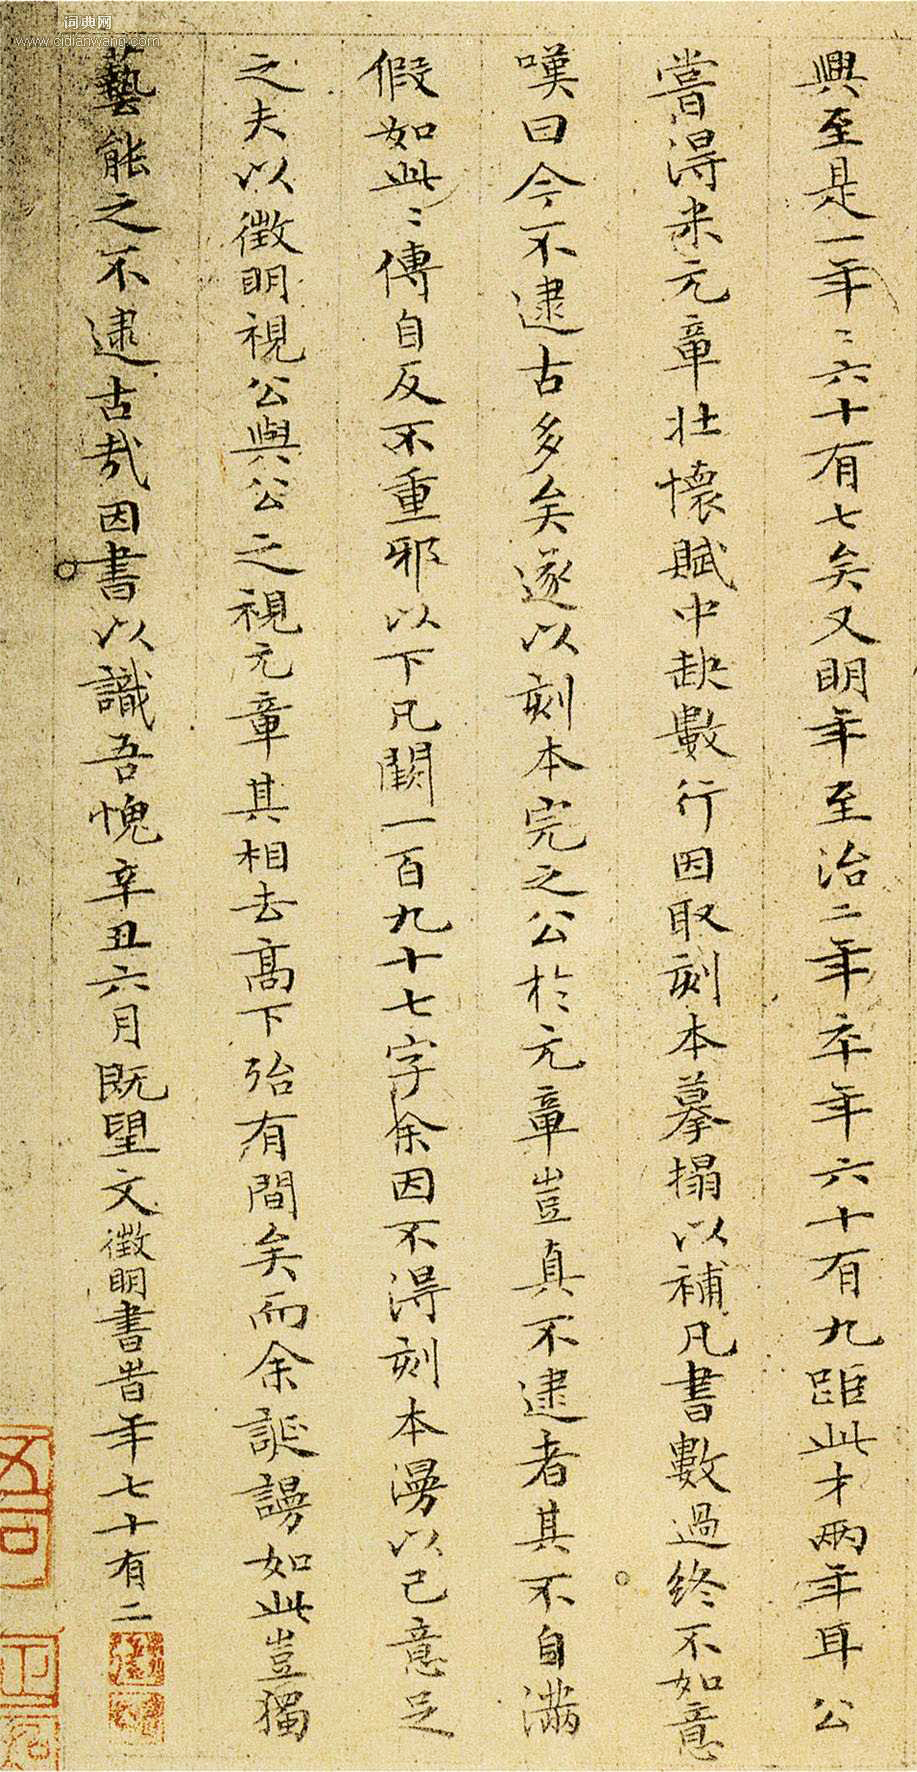 词典网
www.cidianwang.com
興至是一年〻六十有七矣又明年至治二年卒年六十有九距此才兩年耳公
嘗得米元章壯懷賦中缺數行因取刻本摹搨以補凡書數過終不如意
嘆曰今不逮古多矣遂以刻本完之公於元章豈真不逮者其不自滿
假如此〻傳自反不重邪以下凡闕一百九十七字余因不得刻本漫以己意足
之夫以徵明視公與公之視元章其相去高下殆有間矣而余誕謾如此豈獨
藝能之不逮古哉因書以識吾愧辛丑六月既望文徵明書昔年七十有二